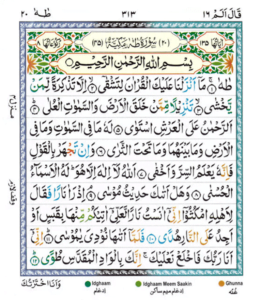 قَالَ اَلَمْ ١٦
٣١٣
طٰهٰ ٢٠
اٰيَاتُهَا ١٣٥
(٢٠) سُوْرَةُ طٰهٰ مَكِّيَّةٌ (٤٥)
رُكُوْعَاتُهَا ٨
بِسْمِ اللّٰهِ الرَّحْمٰنِ الرَّحِيْمِ
طٰهٰ ۚ ١ مَاۤ اَنْزَلْنَا عَلَيْكَ الْقُرْاٰنَ لِتَشْقٰىۤ ۙ ٢ اِلَّا تَذْكِرَةً لِّمَنْ
يَّخْشٰى ۙ ٣ تَنْزِيْلًا مِّمَّنْ خَلَقَ الْاَرْضَ وَالسَّمٰوٰتِ الْعُلٰى ؕ ٤
اَلرَّحْمٰنُ عَلَى الْعَرْشِ اسْتَوٰى ٥ لَهٗ مَا فِى السَّمٰوٰتِ وَمَا فِى
الْاَرْضِ وَمَا بَيْنَهُمَا وَمَا تَحْتَ الثَّرٰى ٦ وَاِنْ تَجْهَرْ بِالْقَوْلِ
فَاِنَّهٗ يَعْلَمُ السِّرَّ وَاَخْفٰى ٧ اَللّٰهُ لَاۤ اِلٰهَ اِلَّا هُوَ ؕ لَهُ الْاَسْمَآءُ
الْحُسْنٰى ٨ وَهَلْ اَتٰىكَ حَدِيْثُ مُوْسٰى ۘ ٩ اِذْ رَاٰ نَارًا فَقَالَ
لِاَهْلِهِ امْكُثُوْۤا اِنِّىْۤ اٰنَسْتُ نَارًا لَّعَلِّىْۤ اٰتِيْكُمْ مِّنْهَا بِقَبَسٍ اَوْ
اَجِدُ عَلَى النَّارِ هُدًى ١٠ فَلَمَّاۤ اَتٰىهَا نُوْدِىَ يٰمُوْسٰى ؕ ١١ اِنِّىْۤ
اَنَا رَبُّكَ فَاخْلَعْ نَعْلَيْكَ ۚ اِنَّكَ بِالْوَادِ الْمُقَدَّسِ طُوًى ؕ ١٢
وَاَنَا اخْتَرْتُكَ
Idghaam
ادغام
Idgham Meem Saakin
ادغام میم ساکن
Ghunna
غنّه